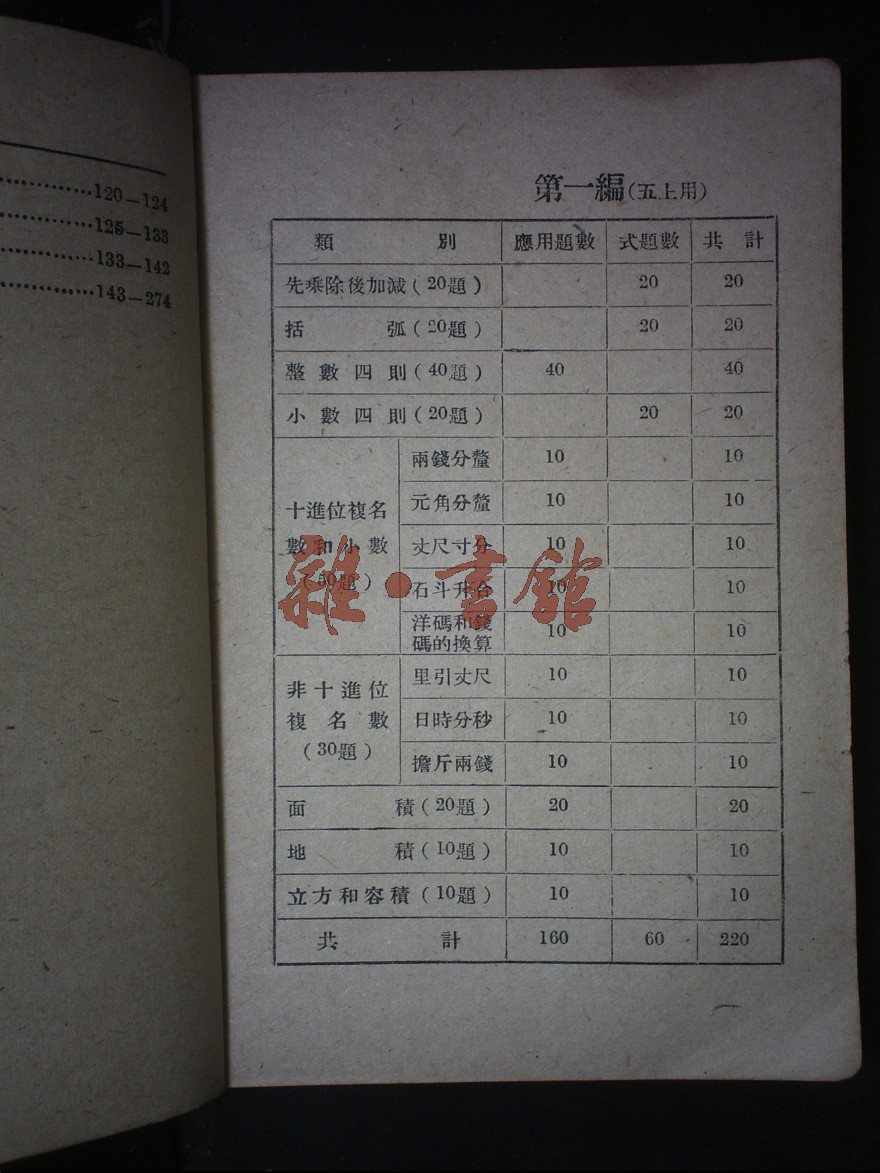 120—124
125—133
133—142
143—274
第一編(五上用)
類別 應用題數 式題數 共計
先乘除後加減(20題) 20 20
括弧(20題) 20 20
整數四則(40題) 40 40
小數四則(20題) 20 20
十進位複名
數和小數
(50題)
兩錢分釐 10 10
元角分釐 10 10
丈尺寸分 10 10
石斗升合 10 10
洋碼和錢
碼的換算 10 10
非十進位
複名數
(30題)
里引丈尺 10 10
日時分秒 10 10
擔斤兩錢 10 10
面積(20題) 20 20
地積(10題) 10 10
立方和容積(10題) 10 10
共計 160 60 220
雜·書館